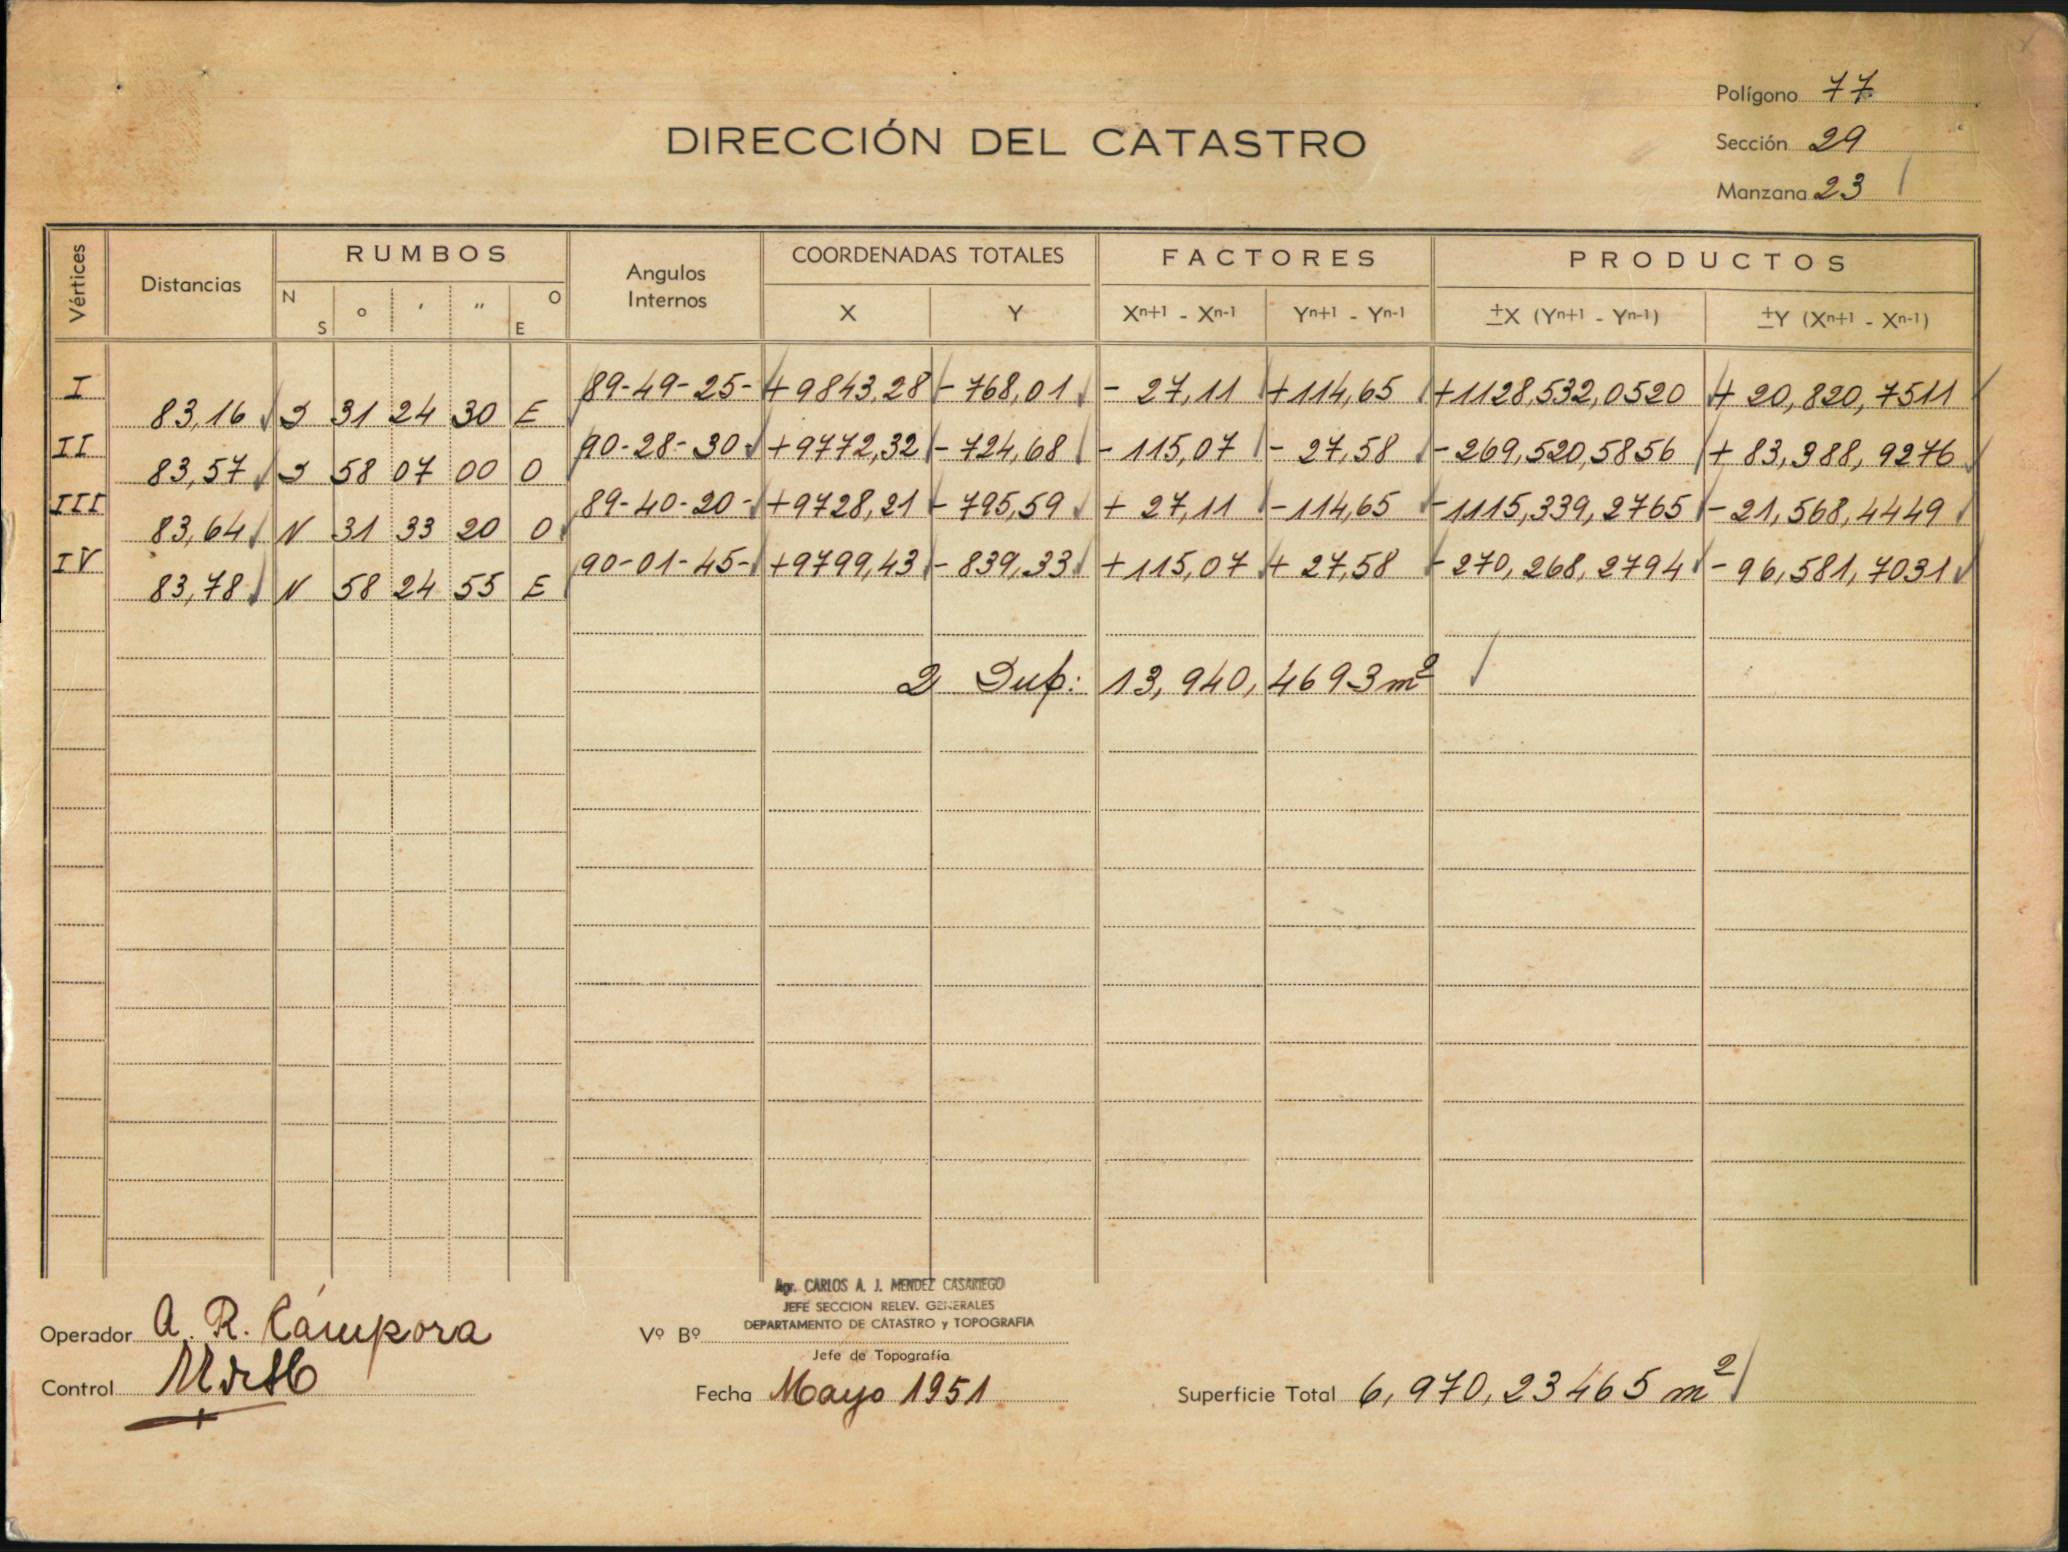 Polígono 77
DIRECCIÓN DEL CATASTRO
Sección 29
Manzana 23
Vértices Distancias RUMBOS Angulos Internos COORDENADAS TOTALES FACTORES PRODUCTOS
N S ° ' " O E X Y Xn+1 - Xn-1 Yn+1 - Yn-1 ±X (Yn+1 - Yn-1) ±Y (Xn+1 - Xn-1)
I 89-49-25- +9843,28 -768,01 - 27,11 +114,65 +1128,532,0520 + 20,820,7511
83,16 S 31 24 30 E
II 90-28-30 +9772,32 -724,68 -115,07 - 27,58 -269,520,5856 + 83,388,9276
83,57 S 58 07 00 O
III 89-40-20- +9728,21 -795,59 + 27,11 -114,65 -1115,339,2765 -21,568,4449
83,64 N 31 33 20 O
IV 90-01-45- +9799,43 -839,33 +115,07 + 27,58 +270,268,2794 -96,581,7031
83,78 N 58 24 55 E
2 Sup: 13,940,4693 m²
Agr. CARLOS A. J. MENDEZ CASARIEGO
JEFE SECCION RELEV. GENERALES
DEPARTAMENTO DE CATASTRO y TOPOGRAFIA
Operador A. R. Cámpora Vº Bº
Jefe de Topografía
Control Fecha Mayo 1951 Superficie Total 6,970,23465 m²